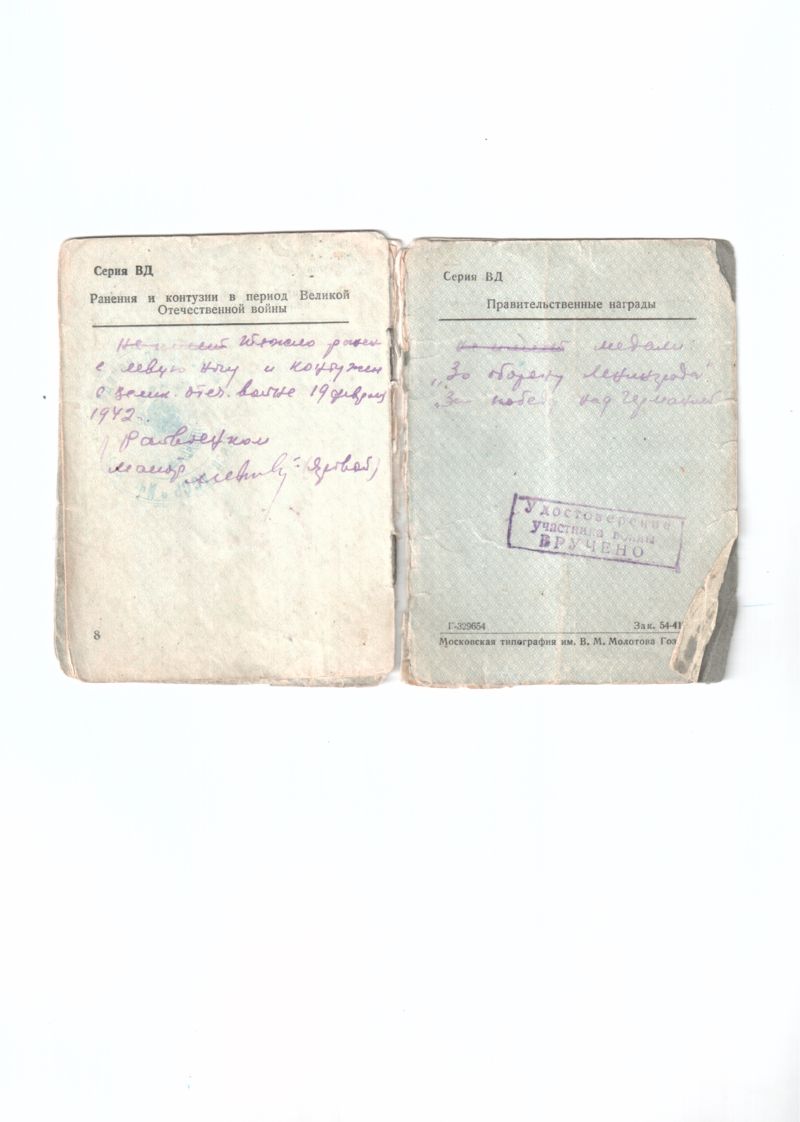 Серия ВД
Ранения и контузии в период Великой
Отечественной войны
тяжело ранен
в левую ногу и контужен
в велик. отеч. войне 19 февраля
1942.
Райвоенком
майор (Яровой)
8
Серия ВД
Правительственные награды
медали:
„За оборону Ленинграда"
„За победу над Германией
Удостоверение
участника войны
ВРУЧЕНО
Г-329654 Зак. 54-41
Московская типография им. В. М. Молотова Гоз